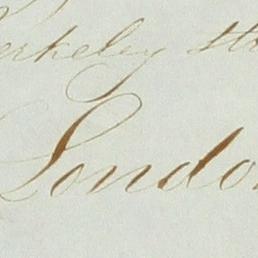 erkeley str
London